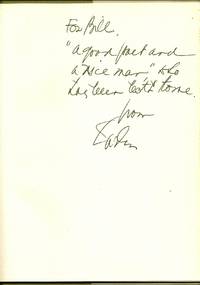 For Bill.
"a good poet and
a nice man" who
has been both to me.
from